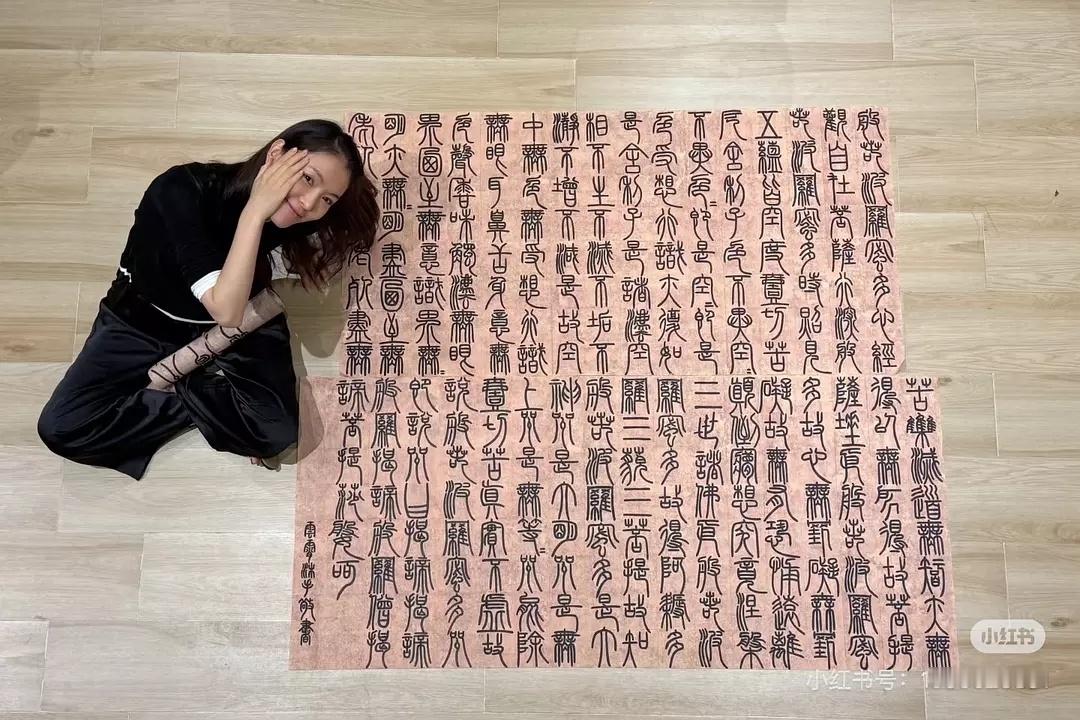 般若波羅蜜多心經
觀自在菩薩行深般
若波羅蜜多時照見
五蘊皆空度壹切苦
厄舍利子色不異空=
不異色=即是空=即是
色受想行識亦復如
是舍利子是諸法空
相不生不滅不垢不
淨不增不減是故空
中無色無受想行識
無眼耳鼻舌身意無
色聲香味觸法無眼
界乃至無意識界無=
明亦無明盡乃至無
老死盡無
苦集滅道無智亦無
得以無所得故菩提
薩埵依般若波羅蜜
多故心無罣礙無罣
礙故無有恐怖遠離
顛倒夢想究竟涅槃
三世諸佛依般若波
羅蜜多故得阿耨多
羅三藐三菩提故知
般若波羅蜜多是大
神咒是大明咒是無
上咒是無等=咒能除
壹切苦真實不虛故
說般若波羅蜜多咒
即說咒曰揭諦揭諦
般羅揭諦般羅僧揭
諦菩提莎婆訶
沐手敬書
小红书
小红书号：1